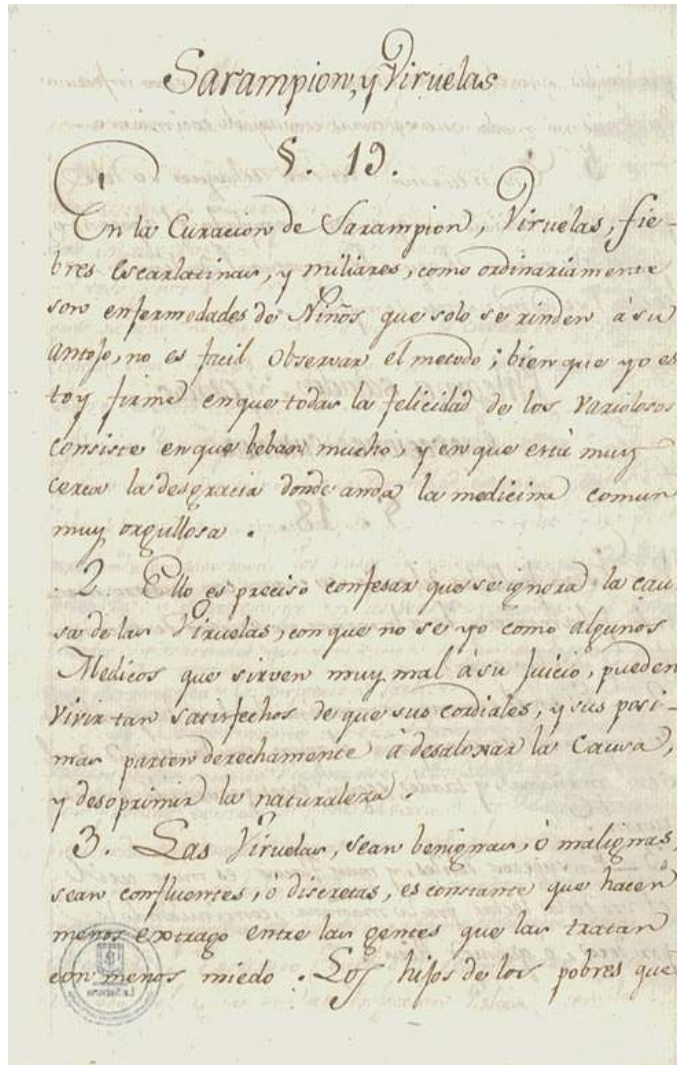 Sarampion, y Viruelas
§. 19.
En la Curacion de Sarampion, Viruelas, fie-
bres Escarlatinas, y miliares, como ordinariamente
son enfermedades de Niños que solo se rinden à su
antojo, no es facil observar el metodo; bien que yo es
toy firme en que todas la felicidad de los variolosos
consiste en que beban mucho, y en que està muy
cerca la desgracia donde anda la medicina comun
muy orgullosa.
2. Ello es preciso confesar que se ignora la cau
sa de las Viruelas, con que no se yo como algunos
Medicos que sirven muy mal à su Juicio, pueden
vivir tan satisfechos de que sus cordiales, y sus posi-
mas parten derechamente à desaloxar la Causa,
y desoprimir la naturaleza.
3. Las Viruelas, sean benignas, ò malignas,
sean confluentes, ò discretas, es constante que hacen
menos extrago entre las gentes que las tratan
con menos miedo. Los hijos de los pobres que